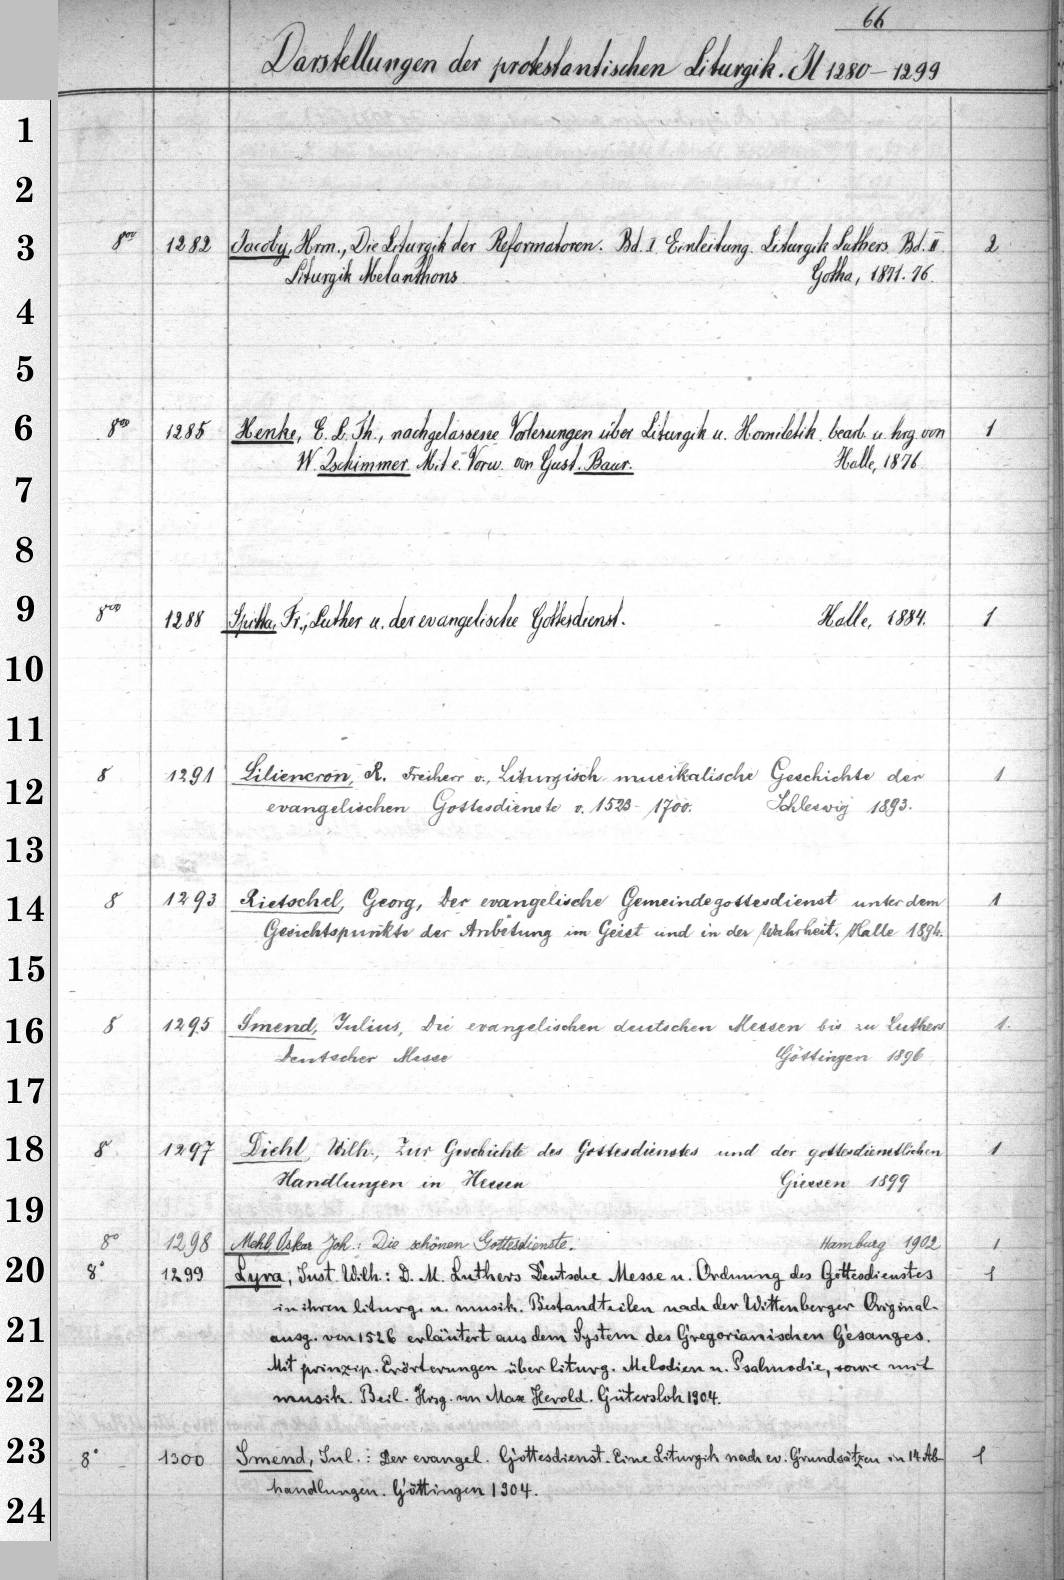 66
Darstellungen der protestantischen Liturgik. Il 1280-1299
1
2
3
8vo 1282 Jacoby, Hrm., Die Liturgik der Reformatoren. Bd. I Einleitung. Liturgik Luthers Bd. II 2
Liturgik Melanthons Gotha, 1871-76.
4
5
6
8vo 1285 Henke, E. L. Th., nachgelassene Vorlesungen über Liturgik u. Homiletik. bearb. u. hrg. von 1
W. Zschimmer. Mit e. Vorw. von Gust. Baur. Halle, 1876
7
8
9
8vo 1288 Spitta, Fr., Luther u. der evangelische Gottesdienst. Halle, 1884. 1
10
11
12
8 1291 Liliencron, R. Freiherr v., Liturgisch-musikalische Geschichte der 1
evangelischen Gottesdienste v. 1523-1700. Schleswig 1893.
13
14
8 1293 Rietschel, Georg, Der evangelische Gemeindegottesdienst unter dem 1
Gesichtspunkte der Anbetung im Geist und in der Wahrheit. Halle 1894.
15
16
8 1295 Smend, Julius, Die evangelischen deutschen Messen bis zu Luthers 1.
Deutscher Messe Göttingen 1896
17
18
8 1297 Diehl, Wilh., Zur Geschichte des Gottesdienstes und der gottesdienstlichen 1
Handlungen in Hessen Giessen 1899
19
8o 1298 Mehl, Oskar Joh.: Die schönen Gottesdienste. Hamburg 1902 1
20
8° 1299 Lyra, Just. Wilh.: D. M. Luthers Deutsche Messe u. Ordnung des Gottesdienstes 1
in ihren liturg. u. musik. Bestandteilen nach der Wittenberger Original-
21
ausg. von 1526 erläutert aus dem System des Gregorianischen Gesanges.
Mit prinzip. Erörterungen über liturg. Melodien u. Psalmodie, sowie mit
22
musik. Beil. Hrsg. von Max Herold. Gütersloh 1904.
23
8° 1300 Smend, Jul.: Der evangel. Gottesdienst. Eine Liturgik nach ev. Grundsätzen in 14 Ab- 1
handlungen. Göttingen 1904.
24